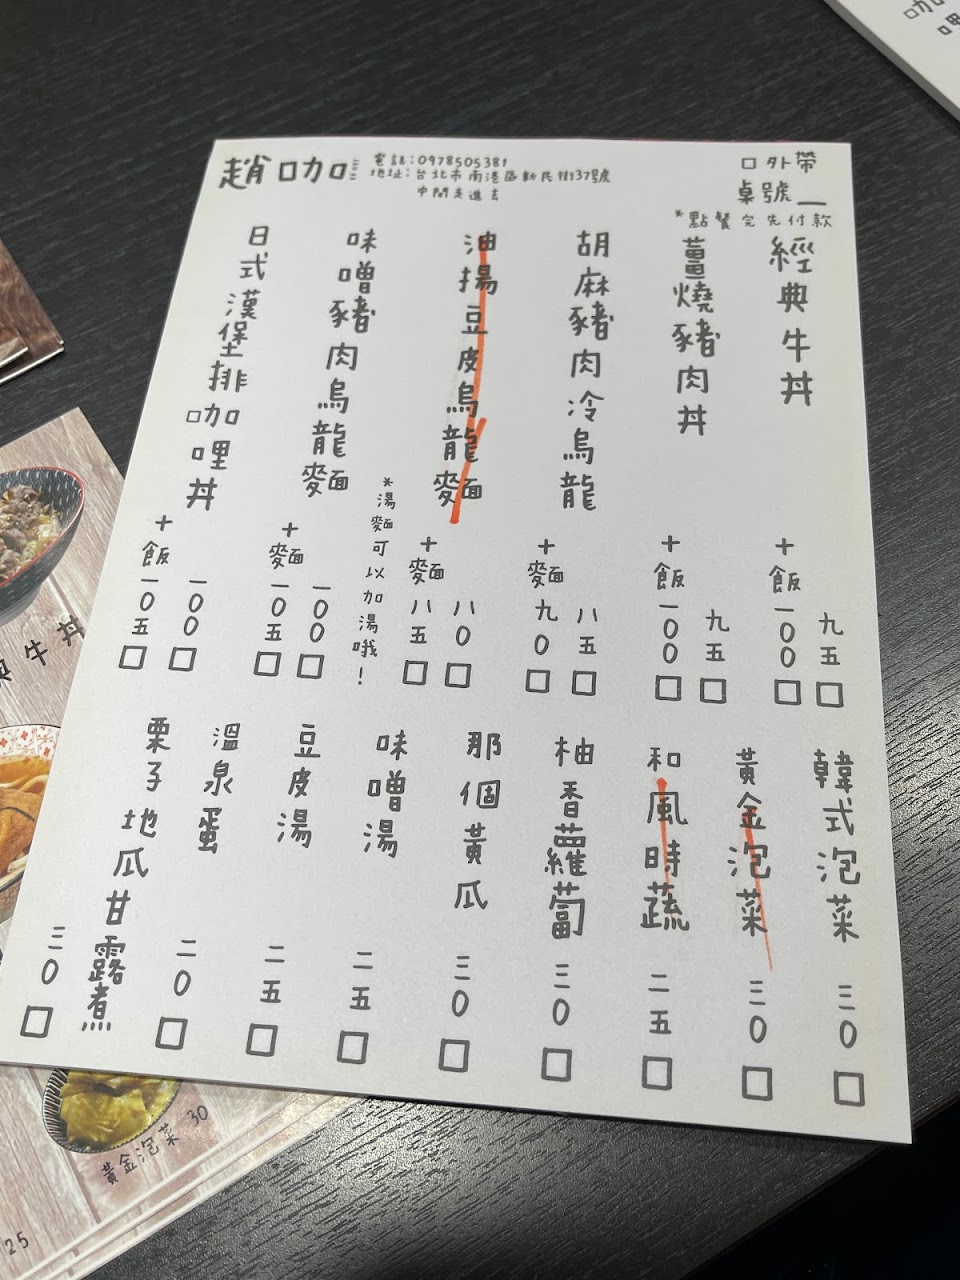 趙咖哩
電話：0978505381
地址：台北市南港區新民街137號
中間走進去
口外帶
桌號＿
*點餐完先付款
經典牛丼
九五 □
+飯 一00 □
薑燒豬肉丼
九五 □
+飯 一00 □
胡麻豬肉冷烏龍
八五 □
+麵 九0 □
油揚豆皮烏龍麵
八0 □
+麵 八五 □
*湯麵可以加湯哦！
味噌豬肉烏龍麵
一00 □
+麵 一0五 □
日式漢堡排咖哩丼
一00 □
+飯 一0五 □
韓式泡菜 三0 □
黃金泡菜 三0 □
和風時蔬 二五 □
柚香蘿蔔 三0 □
那個黃瓜 三0 □
味噌湯 二五 □
豆皮湯 二五 □
溫泉蛋 二0 □
栗子地瓜甘露煮 三0 □
典牛丼
黃金泡菜 30
25
咖